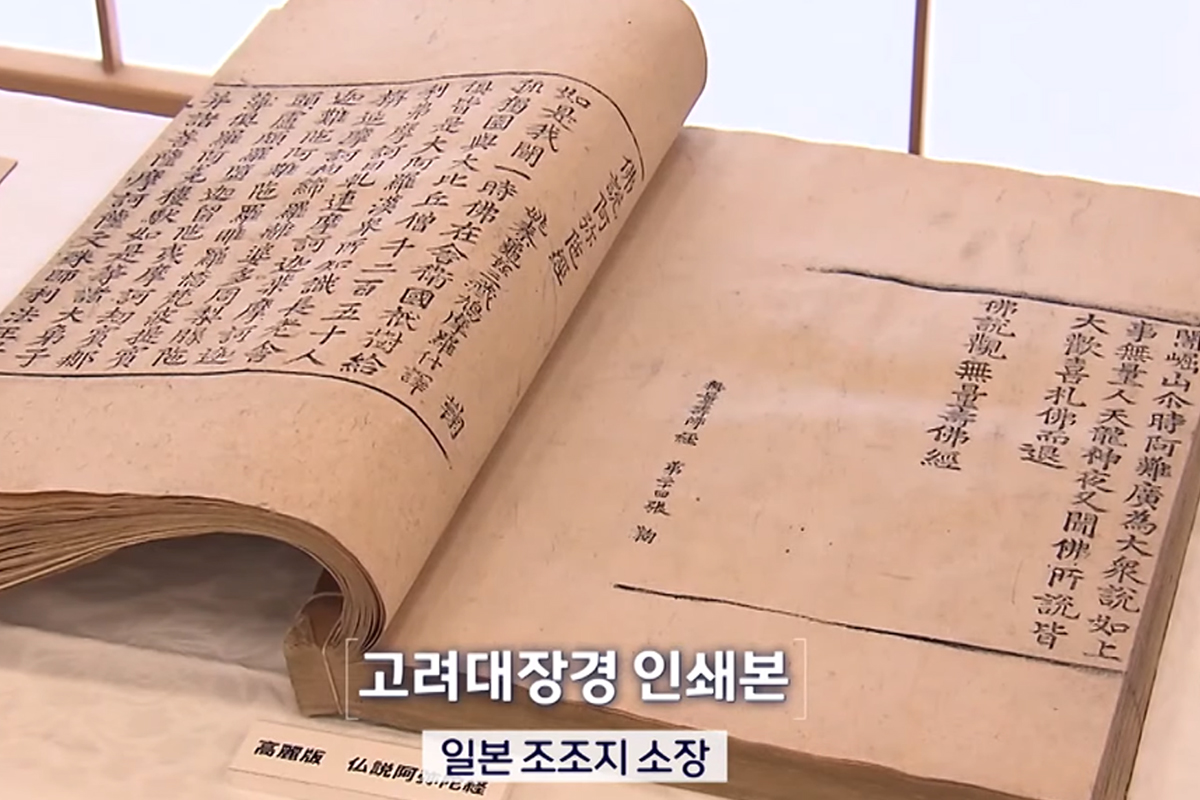 闍崛山尒時阿難廣為大衆說如上
事無量人天龍神夜叉聞佛所說皆
大歡喜礼佛而退
佛說觀無量壽佛經
佛說阿弥陁經 鞠
姚秦龜茲三藏鳩摩羅什譯
如是我聞一時佛在舍衛國祇樹給
孤獨園與大比丘僧千二百五十人
俱皆是大阿羅漢衆所知識長老舍
利弗摩訶目乹連摩訶迦葉摩訶迦
旃延摩訶拘絺羅離婆多周梨槃陁
迦難陁阿難陁羅睺羅憍梵波提賓
頭盧頗羅墮迦留陁夷摩訶劫賓那
薄俱羅阿㝹樓馱如是等諸大弟子
幷諸菩薩摩訶薩文殊師利法王
고려대장경 인쇄본
일본 조조지 소장
高麗版 仏説阿弥陀経